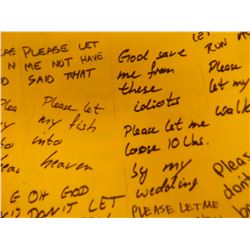 PLEASE LET
ME NOT HAVE
SAID THAT
Please let
my fish
into
heaven
G OH GOD
DON'T LET
God save
me from
these
idiots
Please let me
loose 10 Lbs.
by my
wedding
PLEASE LET ME
RUN
Please
let my